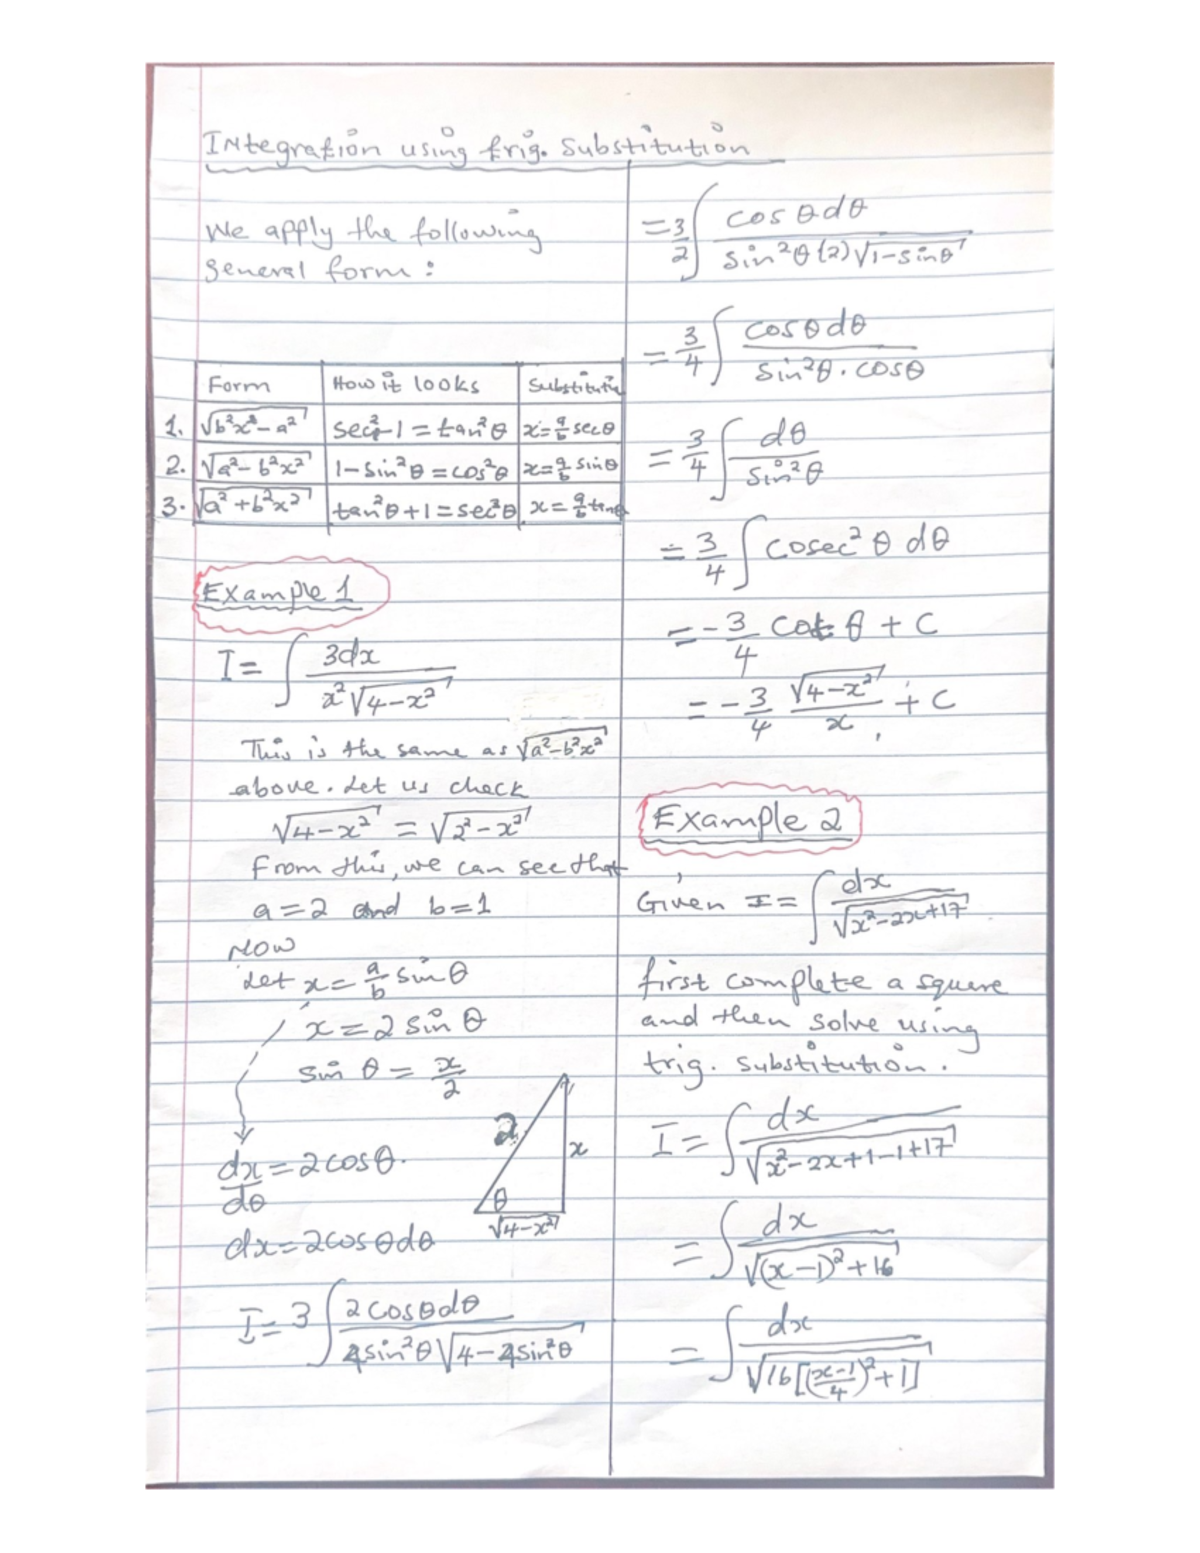 Integration using trig. Substitution
We apply the following
general form:
Form | How it looks | Substitutio
1. √(b²x²-a²) | sec²-1 = tan²θ | x=a/b secθ
2. √(a²-b²x²) | 1-sin²θ = cos²θ | x=a/b sinθ
3. √(a²+b²x²) | tan²θ+1 = sec²θ | x=a/b tanθ
Example 1
I = ∫ 3dx / (x²√(4-x²))
This is the same as √(a²-b²x²)
above. Let us check
√(4-x²) = √(2²-x²)
From this, we can see that
a=2 and b=1
Now
Let x = a/b sinθ
x = 2 sin θ
sin θ = x/2
2
x
θ
√(4-x²)
dx/dθ = 2cosθ.
dx = 2cosθdθ
I = 3 ∫ 2cosθdθ / (4sin²θ√(4-4sin²θ))
= 3/2 ∫ cosθdθ / (sin²θ(2)√(1-sinθ))
= 3/4 ∫ cosθdθ / (sin²θ·cosθ)
= 3/4 ∫ dθ / sin²θ
= 3/4 ∫ cosec²θ dθ
= -3/4 cot θ + C
= -3/4 √(4-x²)/x + C,
Example 2
Given I = ∫ dx / √(x²-2x+17)
first complete a square
and then solve using
trig. substitution.
I = ∫ dx / √(x²-2x+1-1+17)
= ∫ dx / √((x-1)²+16)
= ∫ dx / √(16[((x-1)/4)²+1])